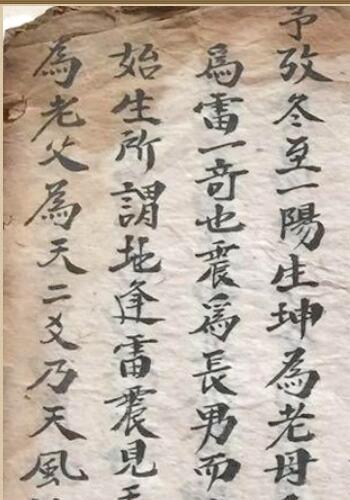 予攷冬至一陽生坤為老母
為雷一奇也震為長男而
始生所謂地逢雷震見天
為老父為天二爻乃天風